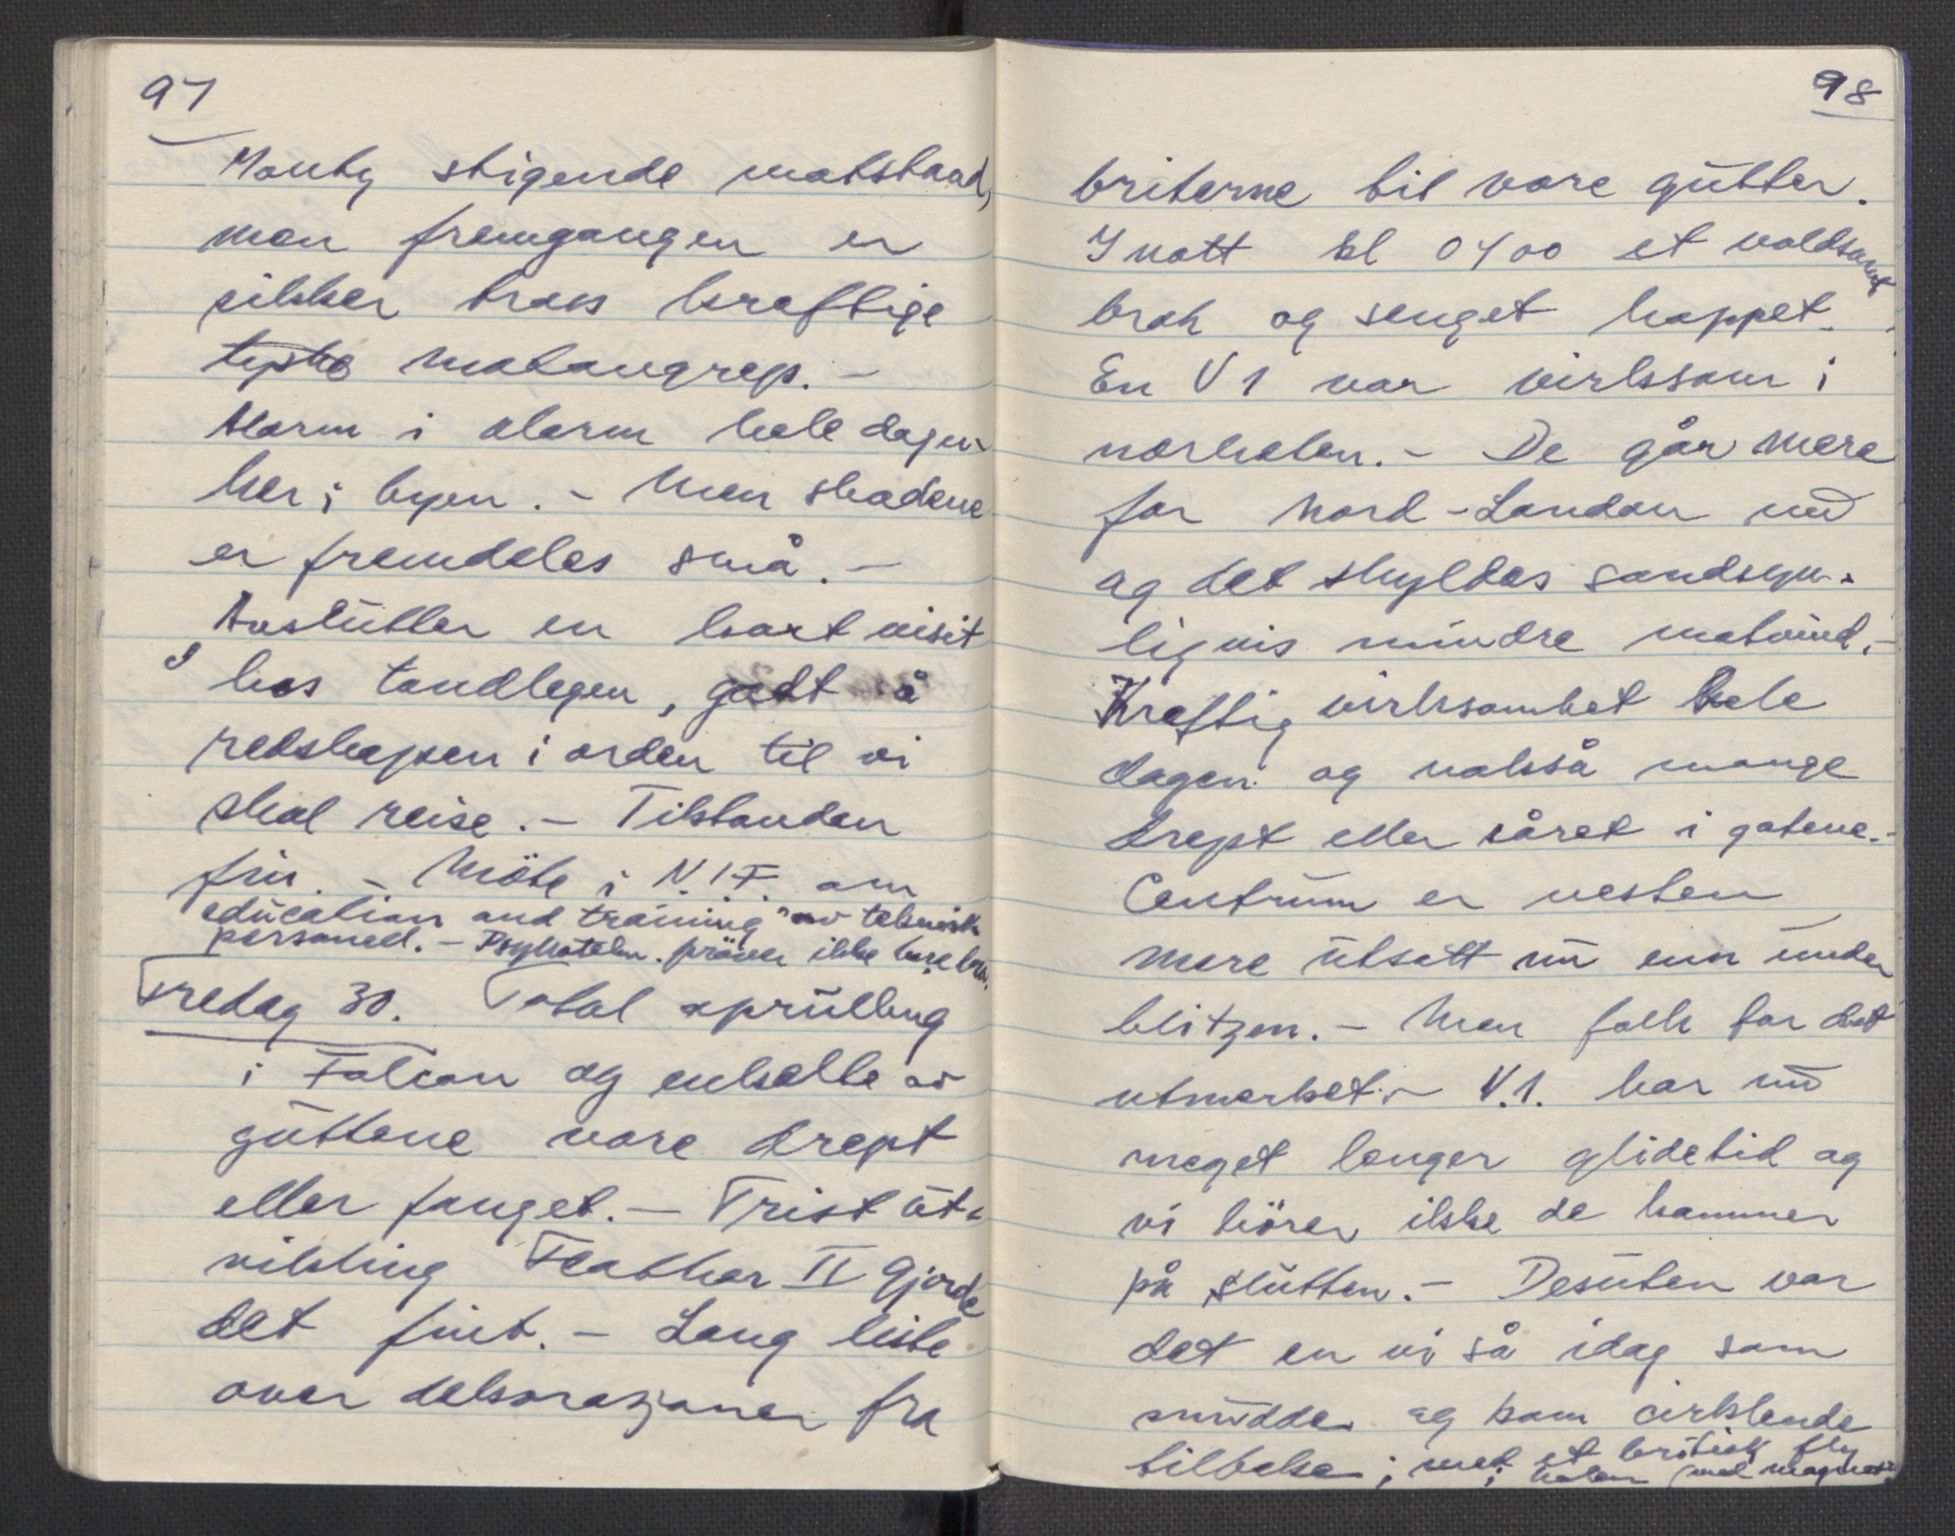 97
Monty stigende motstand,
men fremgangen er
sikker tross kreftige
tyske motangrep. -
Alarm i alarm hele dagen
her i byen. - Men skadene
er fremdeles små. -
Avslutter en kort visit
hos tandlegen, godt å
redskapen i orden til vi
skal reise. - Tilstanden
fin. - Möte i N.I.F. om
"education and training" av teknisk
personell. - Psykotekn. pröver ikke bare bra.
Fredag 30. Total oprulling
i Falcon og enkelte av
guttene vore drept
eller fanget. - Trist ut-
vikling Feather II gjorde
det fint. - Lang liste
over dekorasjoner fra
98
briterne til vore gutter.
I natt kl 0400 et voldsomt
brak og senget hoppet.
En V1 var virksom i
nærheten. - De går mere
for Nord-London nu
og det skyldes sandsyn-
ligvis mindre motvind. -
Kreftig virksomhet hele
dagen og nokså mange
drept eller såret i gatene. -
Centrum er nesten
mere utsatt nu enn under
blitzen. - Men folk tar det
utmerket. - V.1. har nu
meget lenger glidetid og
vi hörer ikke de kommer
på slutten. - Desuten var
det en vi så idag som
snudde og kom cirklende
tilbake; med et britisk fly
i halen (med